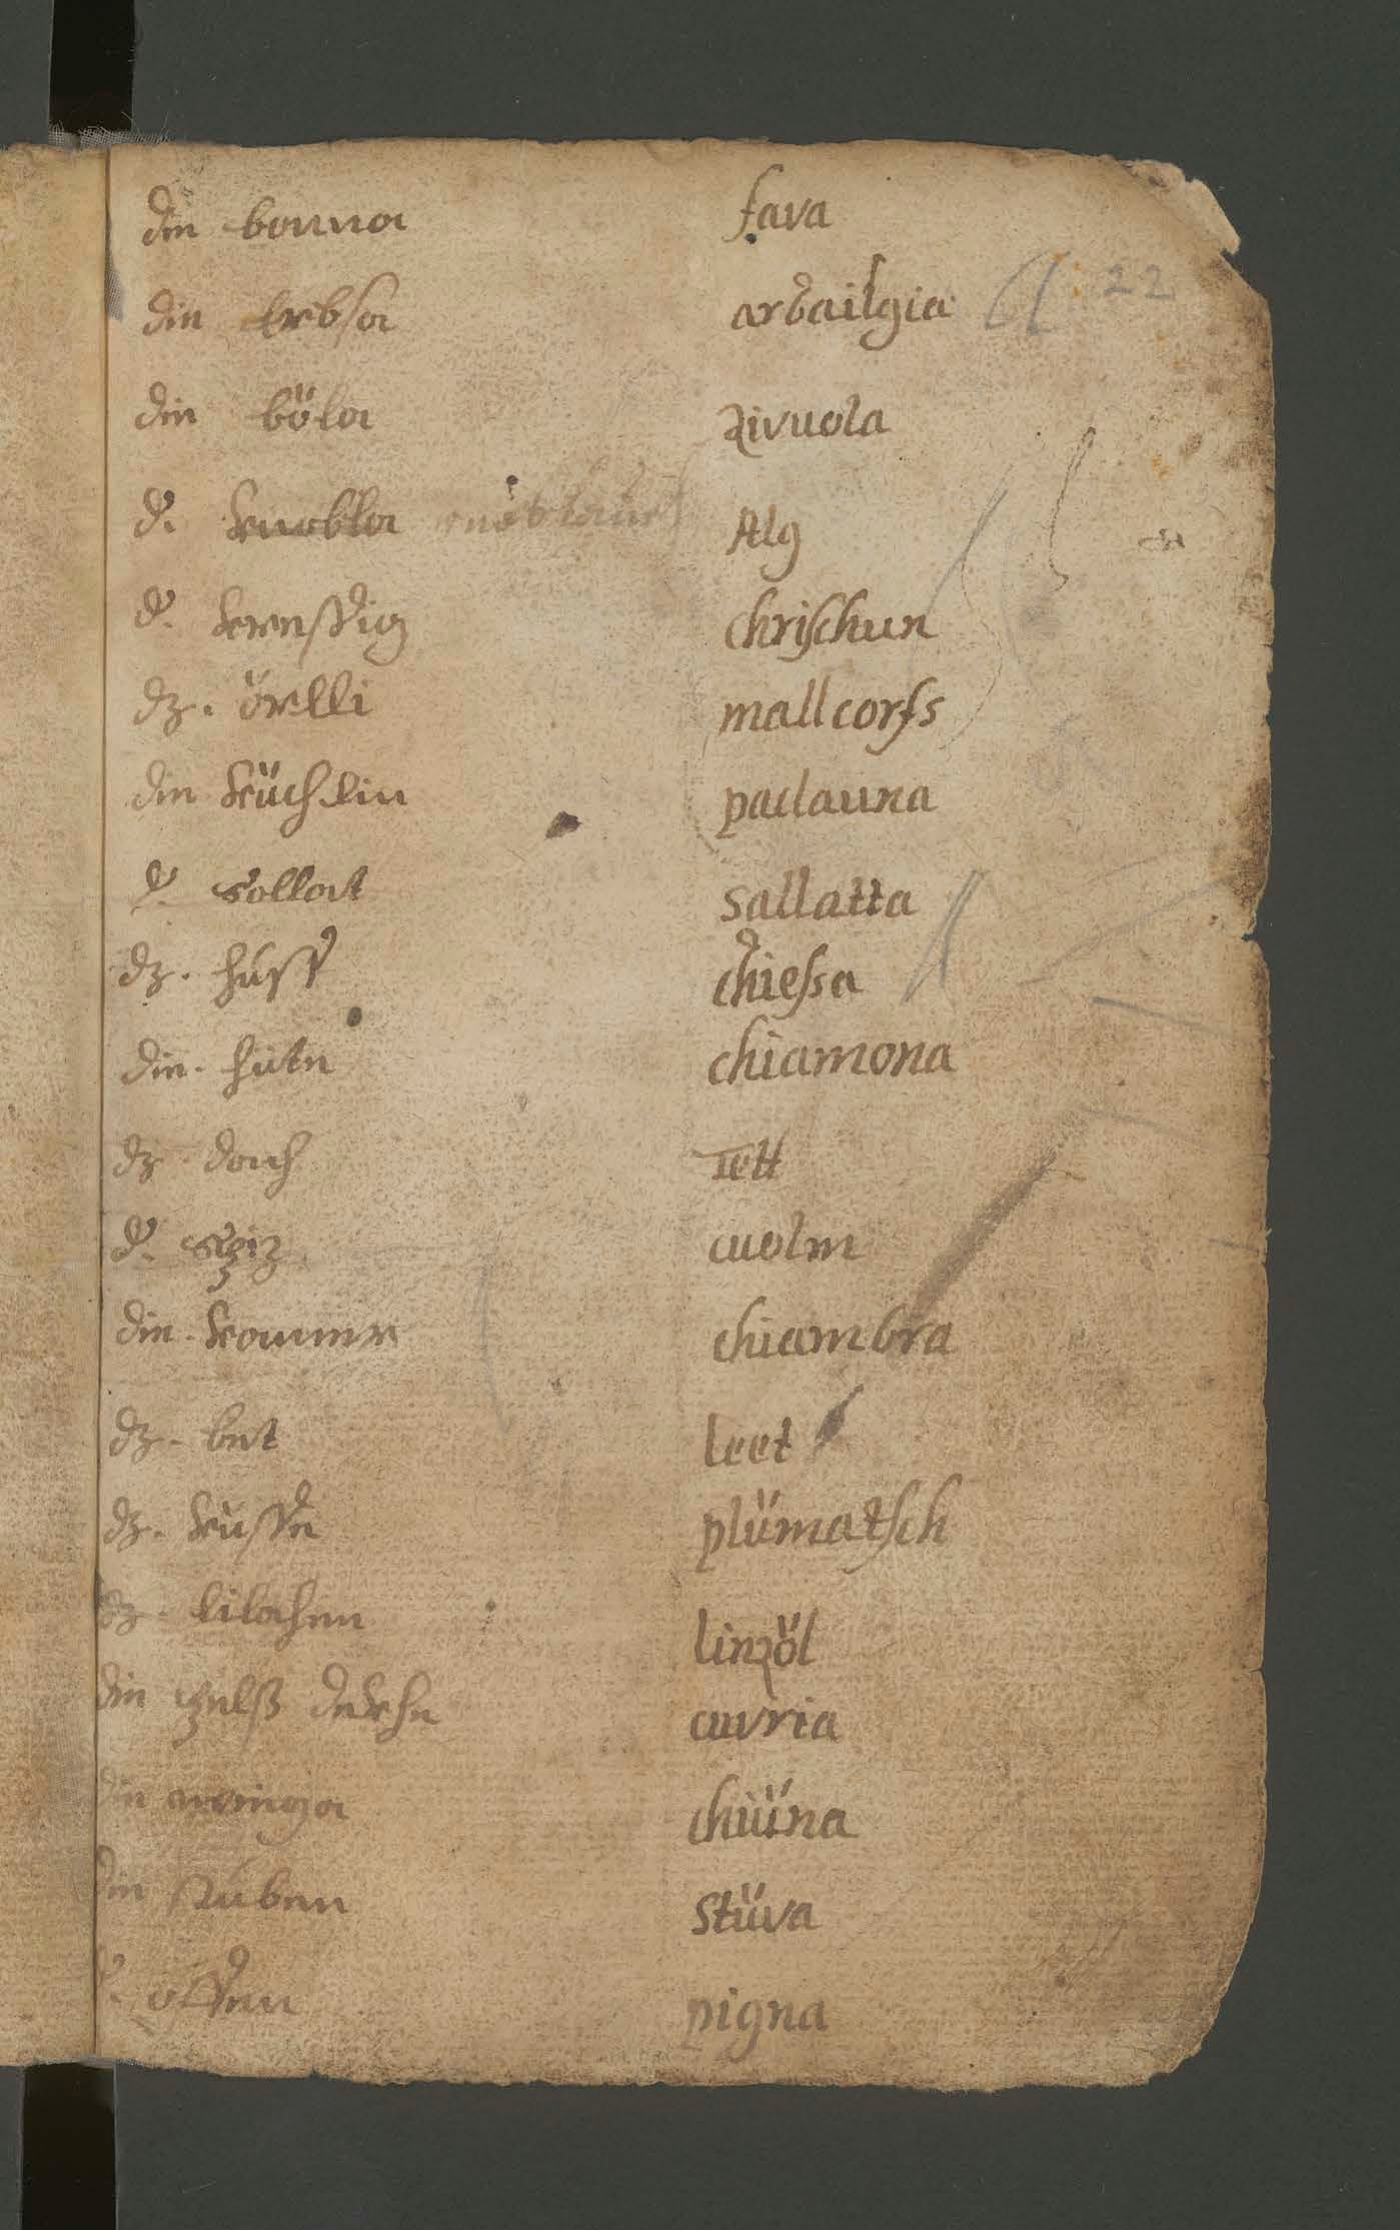 die bonna fava
die Erbsa arbailgia 22
die böla zivuola
d. knobla knoblauch Alg
d. krenssdig chrischun
dz. örelli mallcorfs
die küchlin paclauna
d. sallat sallatta
dz. huss chiessa
die. hüte chiamona
dz dach Tett
d. spiz cuolm
die. kammer chiambra
dz. bet leet
dz. küsse plümatsch
dz. lilachen linzöl
die dekhe cuvria
die chiüna
die stuben stüva
d. offen pigna